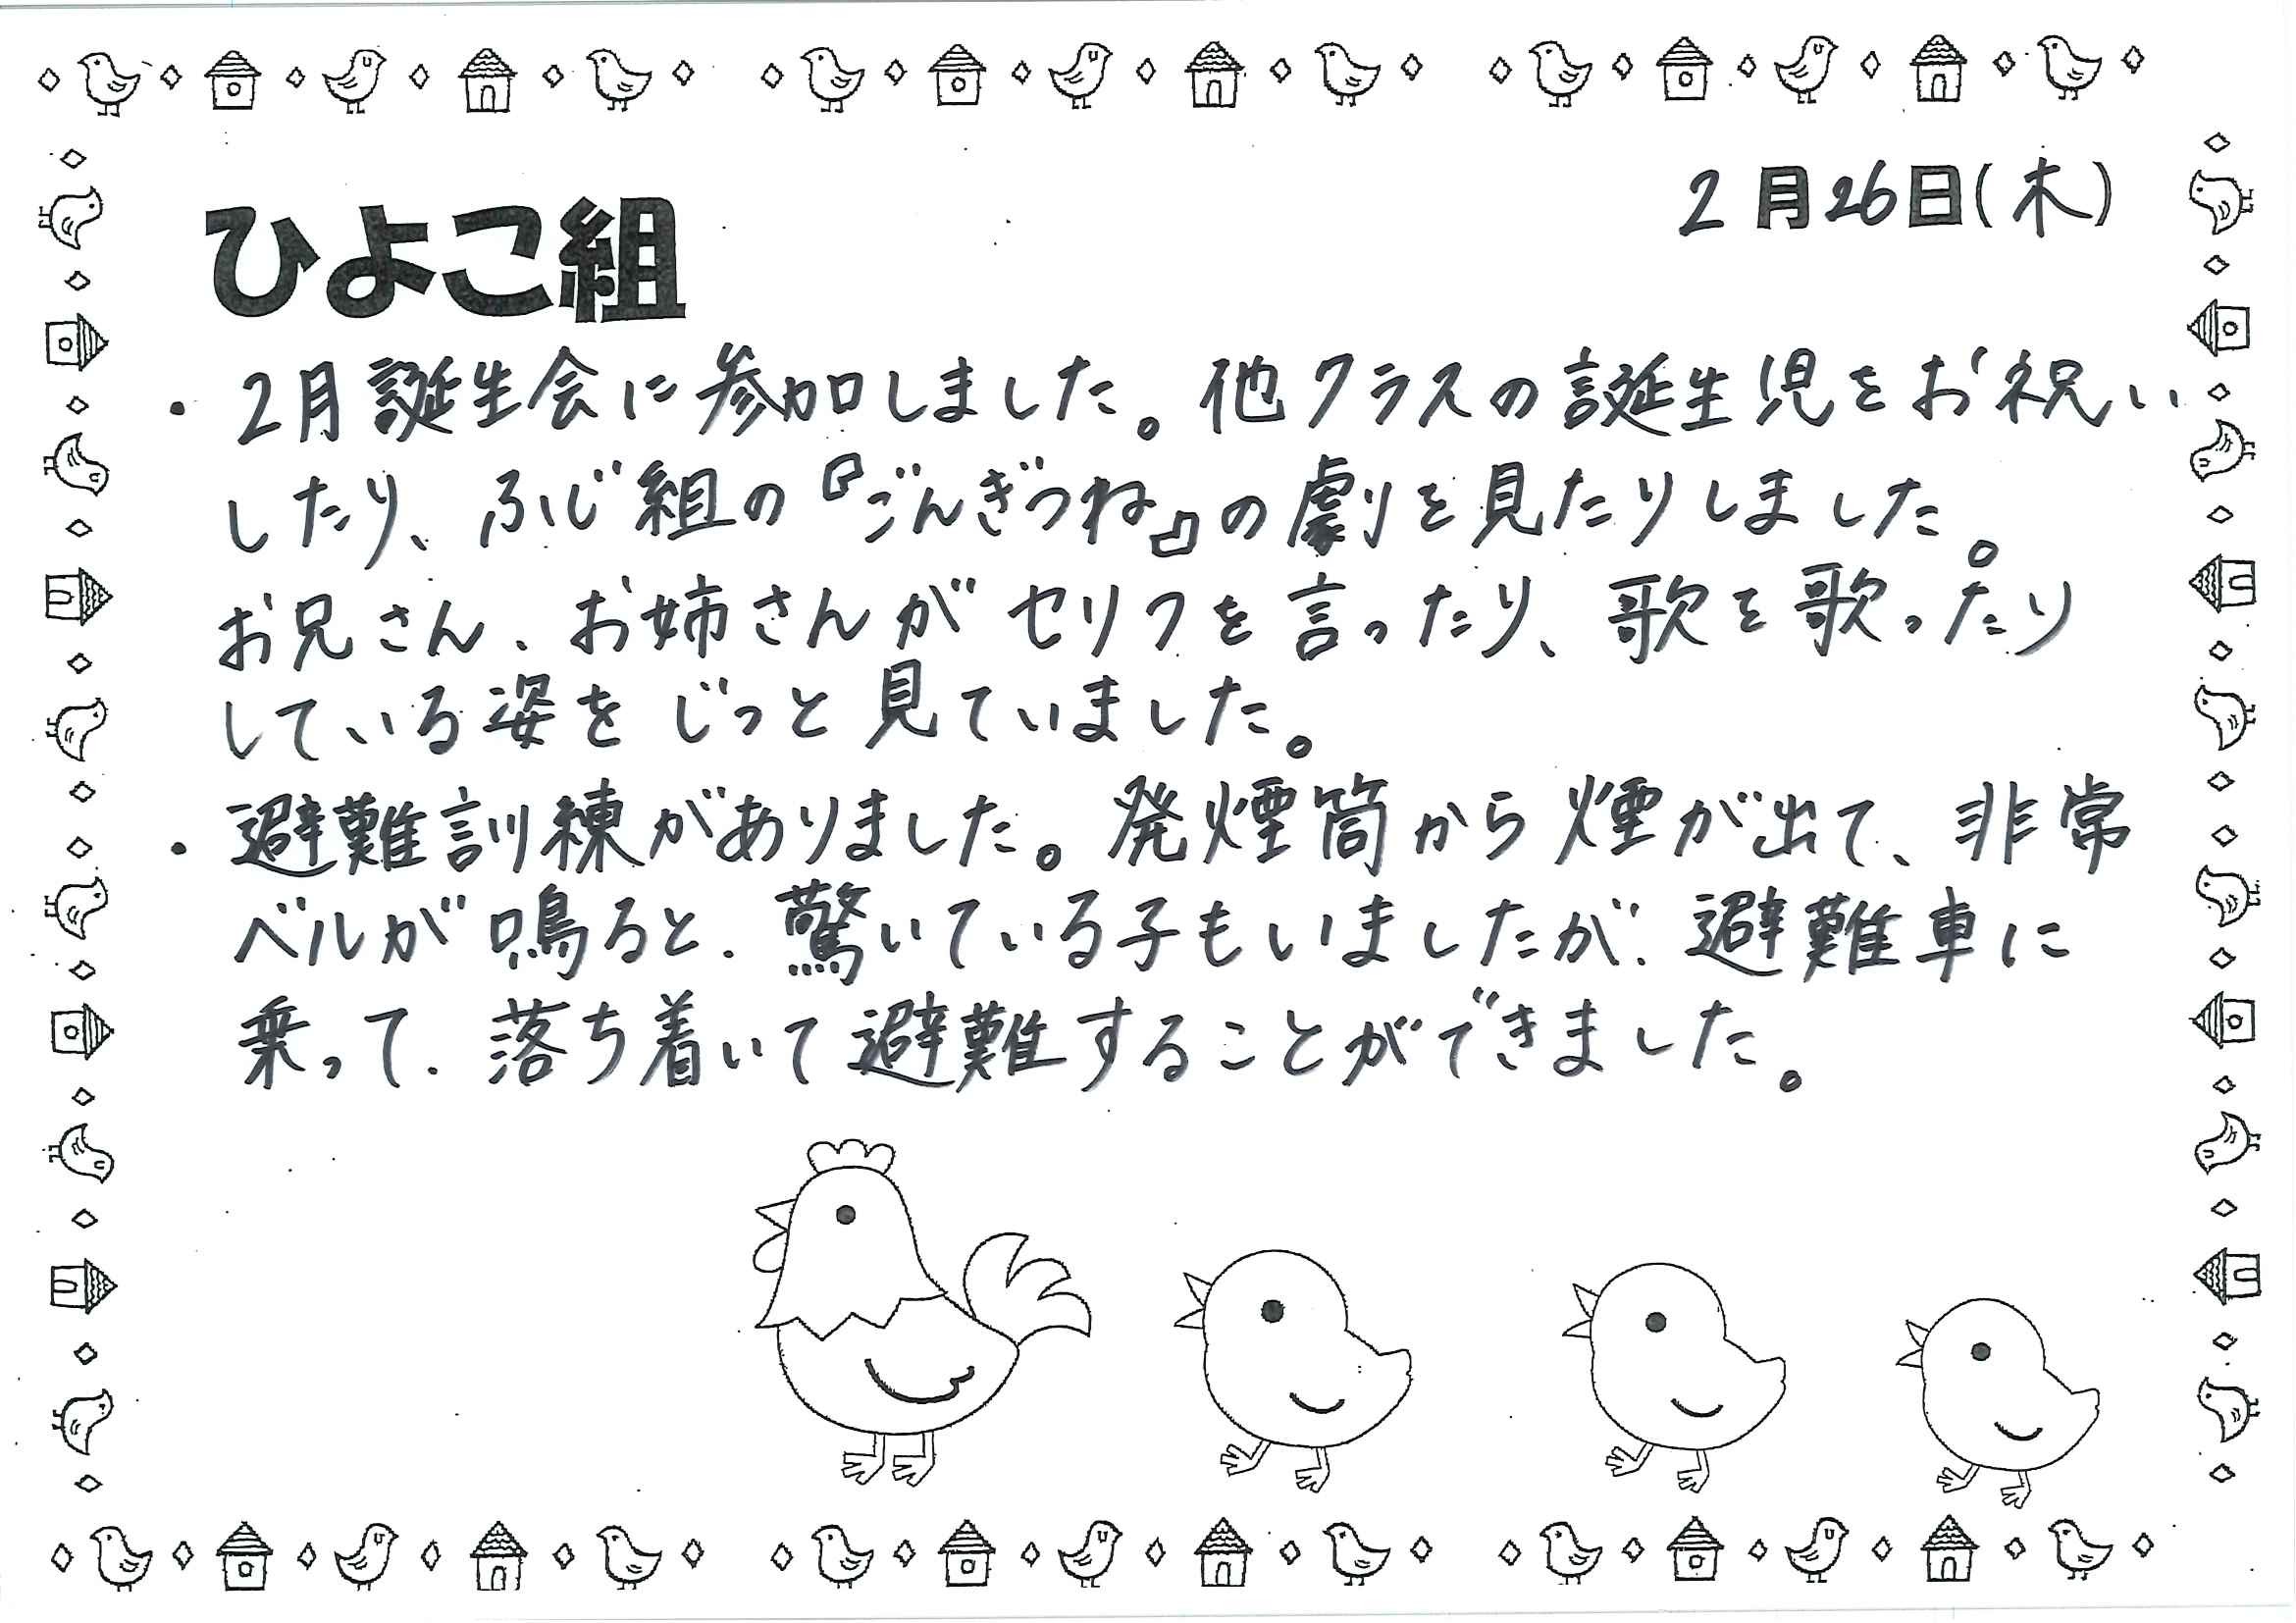 2月26日(木)
ひよこ組
・2月誕生会に参加しました。他クラスの誕生児をお祝い
したり、ふじ組の『ごんぎつね』の劇を見たりしました。
お兄さん、お姉さんがセリフを言ったり、歌を歌ったり
している姿をじっと見ていました。
・避難訓練がありました。発煙筒から煙が出て、非常
ベルが鳴ると、驚いている子もいましたが、避難車に
乗って、落ち着いて避難することができました。